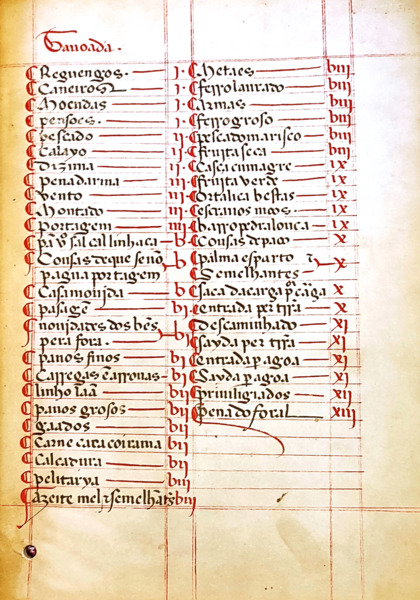 Tauoada.
Reguengos. j.
Caneiros j.
Moendas j.
pensoẽs. j.
pescado ij
Galayo ij.
Dizima ij.
Pena darma iij
Vento iij
Montado iij
portagem iiij
pã vº sal cal linhaca b
Cousas de que se nõ b
pagua portagem
Casa mouida b
pasagẽ bj
nouidades dos bẽs bj
pera fora.
panos finos bj
Carregas ẽ arrouas bj
linho laã bij
panos grosos bij
gaados bij
Carne caca coirama bij
Calcadura bij
pelitarya biij
Azeite mel ⁊ semelhãts biij
Metaes biij
ferro laurado biij
Armas biij
ferro groso biij
pescado marisco biij
fruita seca biij
Casca cumagre ix
fruita verde ix
Ortalica bestas ix
escrauos mcos. ix
barro pedra louca ix
Cousas de paao x
palma esparto ⁊ x
semelhantes
saca da carga pº cãrga x
entrada per trra x
descaminhado xj
sayda per trra xj
entrada per agoa xj
Sayda per agoa xj
priuiligiados xij
pena do foral xiij